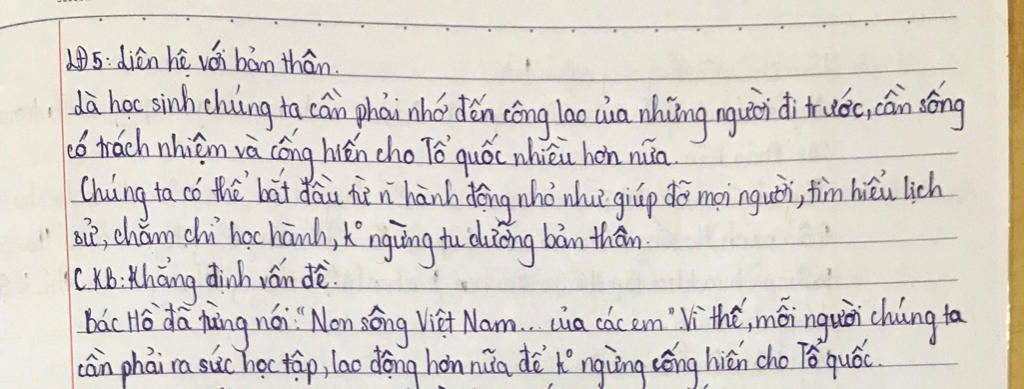 LĐ5: Liên hệ với bản thân.
Là học sinh chúng ta cần phải nhớ đến công lao của những người đi trước, cần sống
có trách nhiệm và cống hiến cho Tổ quốc nhiều hơn nữa.
Chúng ta có thể bắt đầu từ n~ hành động nhỏ như giúp đỡ mọi người, tìm hiểu lịch
sử, chăm chỉ học hành, k° ngừng tu dưỡng bản thân.
C. KB: Khẳng định vấn đề.
Bác Hồ đã từng nói: "Non sông Việt Nam... của các em". Vì thế, mỗi người chúng ta
cần phải ra sức học tập, lao động hơn nữa để k° ngừng cống hiến cho Tổ quốc.